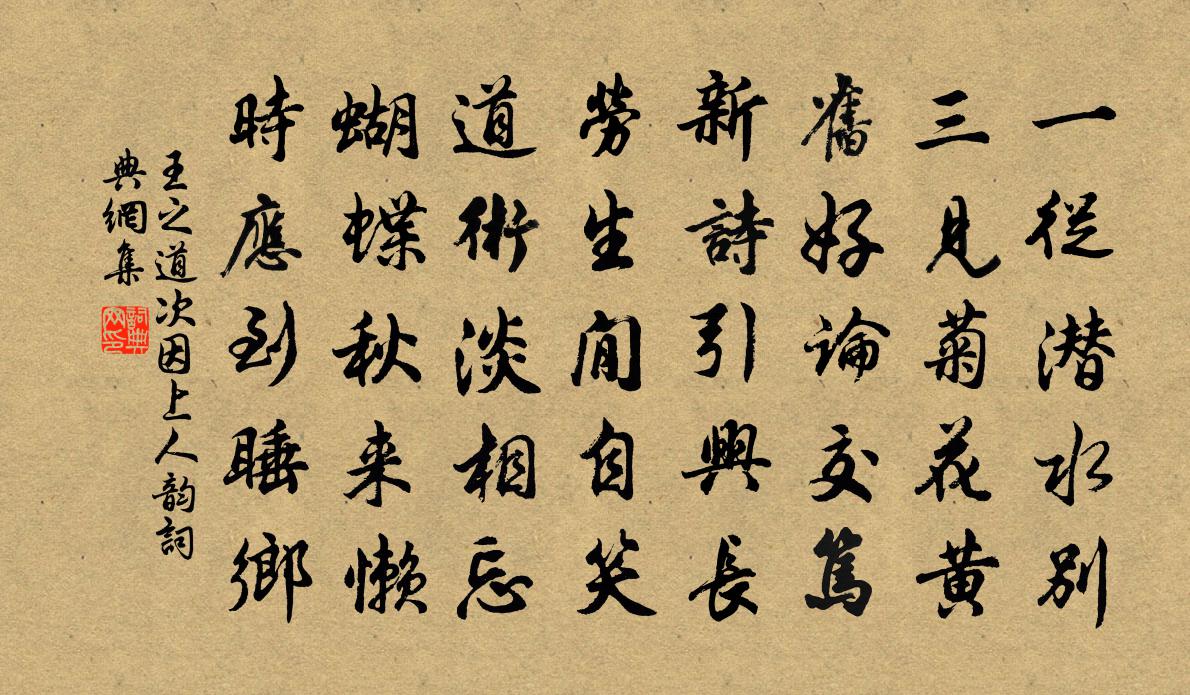 一從潜水別
三見菊花黄
舊好論交篤
新詩引興長
勞生閒自笑
道術淡相忘
蝴蝶秋来懒
時應到睡鄉
王之道次因上人韵詞
典網集
詞典
网印